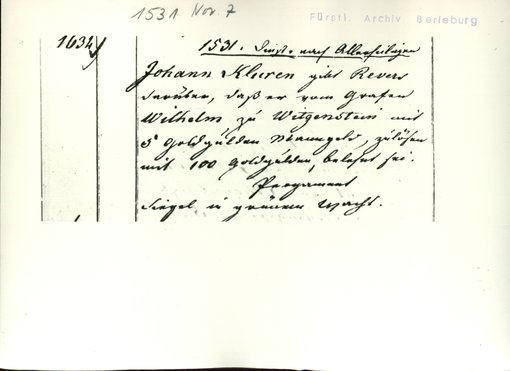 1531 Nov. 7
Fürstl. Archiv Berleburg
1634
1531. Dinst. nach Allerheiligen
Johann Kluren gibt Revers
darüber, daß er vom Grafen
Wilhelm zu Witgenstein mit
5 Goldgülden Manngeld, zulösen
mit 100 Goldgülden, belehnt sei.
Pergament
Siegel in grünem Wachs.